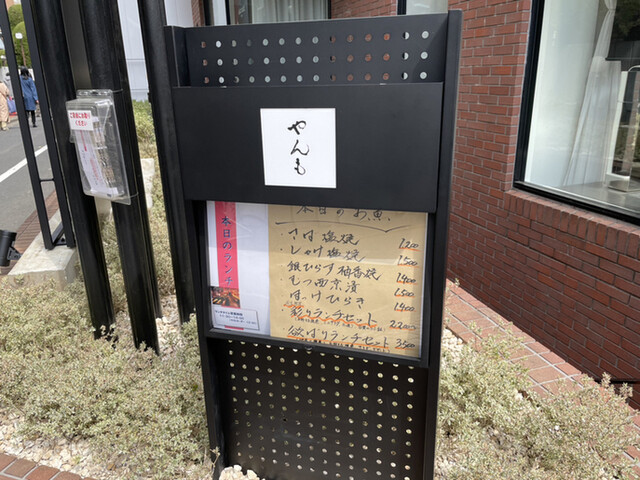 やんも
ご自由にお取り
ください
本日のランチ
本日のお魚
・さば塩焼 1,200
・しゃけ塩焼 1,500
銀ひらす柚香焼 1,400
むつ西京漬 1,500
ほっけひらき 1,400
彩りランチセット 2,200
欲ばりランチセット 3,500